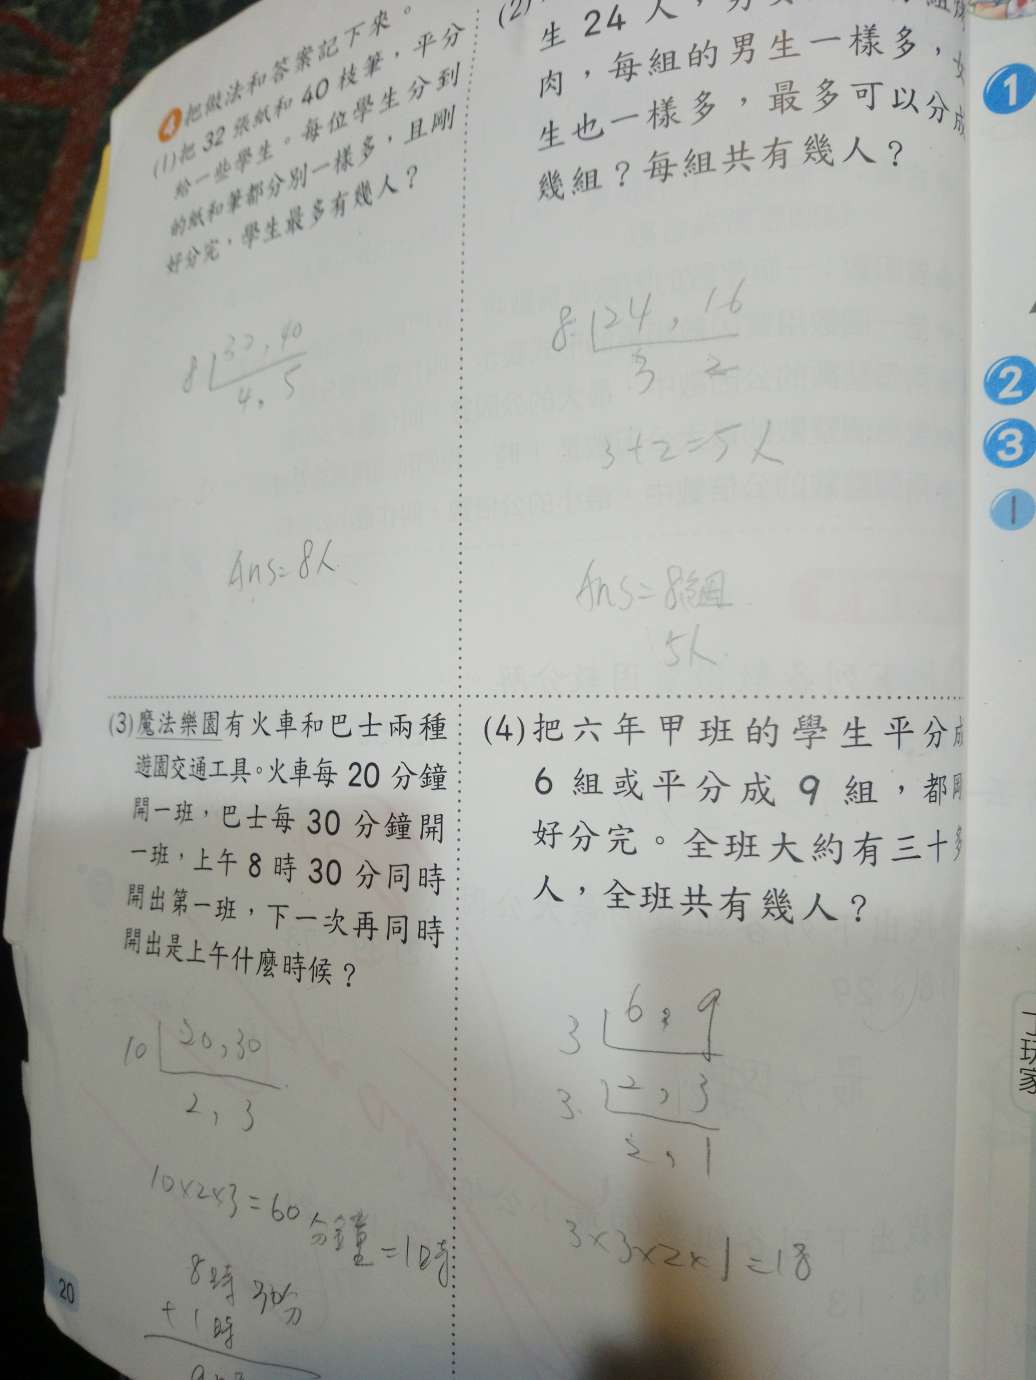 4 把做法和答案記下來。
(1)把 32 張紙和 40 枝筆,平分
給一些學生。每位學生分到
的紙和筆都分別一樣多,且剛
好分完,學生最多有幾人?
8 32,40
4,5
Ans=8人
(2)
生 24 人,
肉,每組的男生一樣多,女
生也一樣多,最多可以分成
幾組?每組共有幾人?
8 24,16
3 2
3+2=5人
Ans=8組
5人
(3)魔法樂園有火車和巴士兩種
遊園交通工具。火車每 20 分鐘
開一班,巴士每 30 分鐘開
一班,上午 8 時 30 分同時
開出第一班,下一次再同時
開出是上午什麼時候?
10 20,30
2,3
10×2×3=60分鐘=1時
8時30分
+1時
(4)把六年甲班的學生平分成
6 組或平分成 9 組,都剛
好分完。全班大約有三十多
人,全班共有幾人?
3 6,9
3 2,3
2,1
3×3×2×1=18
20
1
2
3
1
玩家